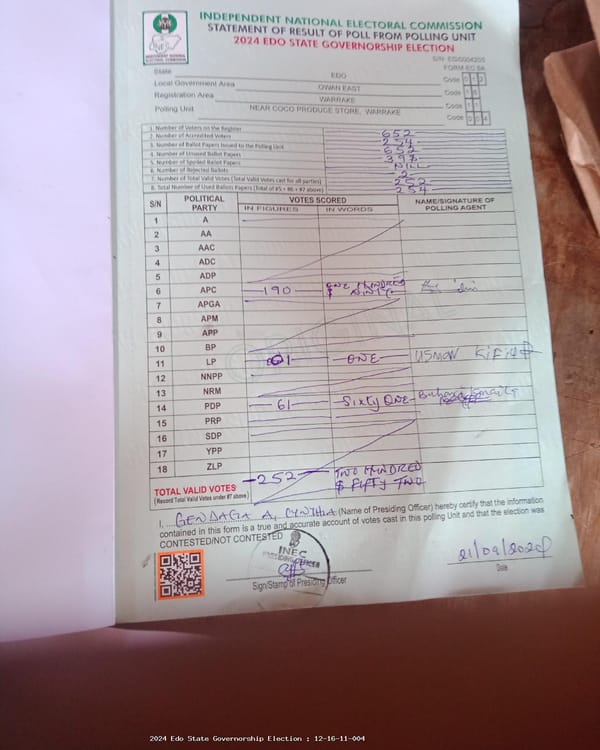 INDEPENDENT NATIONAL ELECTORAL COMMISSION
STATEMENT OF RESULT OF POLL FROM POLLING UNIT
2024 EDO STATE GOVERNORSHIP ELECTION
FORM EC 8A
State EDO Code 0 1 2
Local Government Area OWAN EAST Code 1 6
Registration Area WARRAKE Code 1 1
Polling Unit NEAR COCO PRODUCE STORE, WARRAKE Code 0 0 4
1. Number of Voters on the Register 652
2. Number of Accredited Voters 254
3. Number of Ballot Papers Issued to the Polling Unit 652
4. Number of Unused Ballot Papers 398
5. Number of Spoiled Ballot Papers NILL
6. Number of Rejected Ballots 2
7. Number of Total Valid Votes (Total Valid Votes cast for all parties) 252
8. Total Number of Used Ballots Papers (Total of #5 + #6 + #7 above) 254
S/N POLITICAL PARTY VOTES SCORED NAME/SIGNATURE OF POLLING AGENT
IN FIGURES IN WORDS
1 A
2 AA
3 AAC
4 ADC
5 ADP
6 APC 190 ONE HUNDRED & NINTY
7 APGA
8 APM
9 APP
10 BP
11 LP 01 ONE USMAN
12 NNPP
13 NRM
14 PDP 61 Sixty ONE
15 PRP
16 SDP
17 YPP
18 ZLP
TOTAL VALID VOTES 252 TWO HUNDRED
(Record Total Valid Votes under #7 above) & FIFTY TWO
I, GENDAGA A. CYNTHIA (Name of Presiding Officer) hereby certify that the information
contained in this form is a true and accurate account of votes cast in this polling Unit and that the election was
CONTESTED/NOT CONTESTED
INEC
21/09/2024
Sign/Stamp of Presiding Officer Date
2024 Edo State Governorship Election : 12-16-11-004